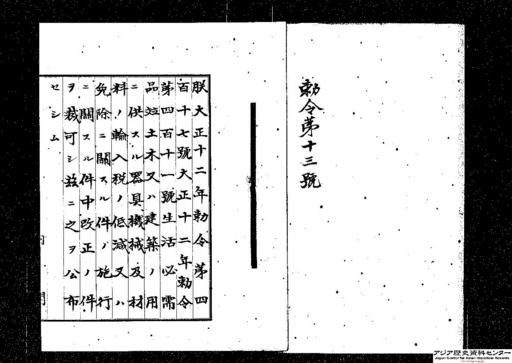 勅令第十三號
朕大正十二年勅令第四
百十七號大正十二年勅令
第四百十一號生活必需
品竝土木又ハ建築ノ用
ニ供スル器具機械及材
料ノ輸入税ノ低減又ハ
免除ニ關スル件ノ施行
ニ關スル件中改正ノ件
ヲ裁可シ玆ニ之ヲ公布
セシム
内閣
アジア歴史資料センター
Japan Center for Asian Historical Records